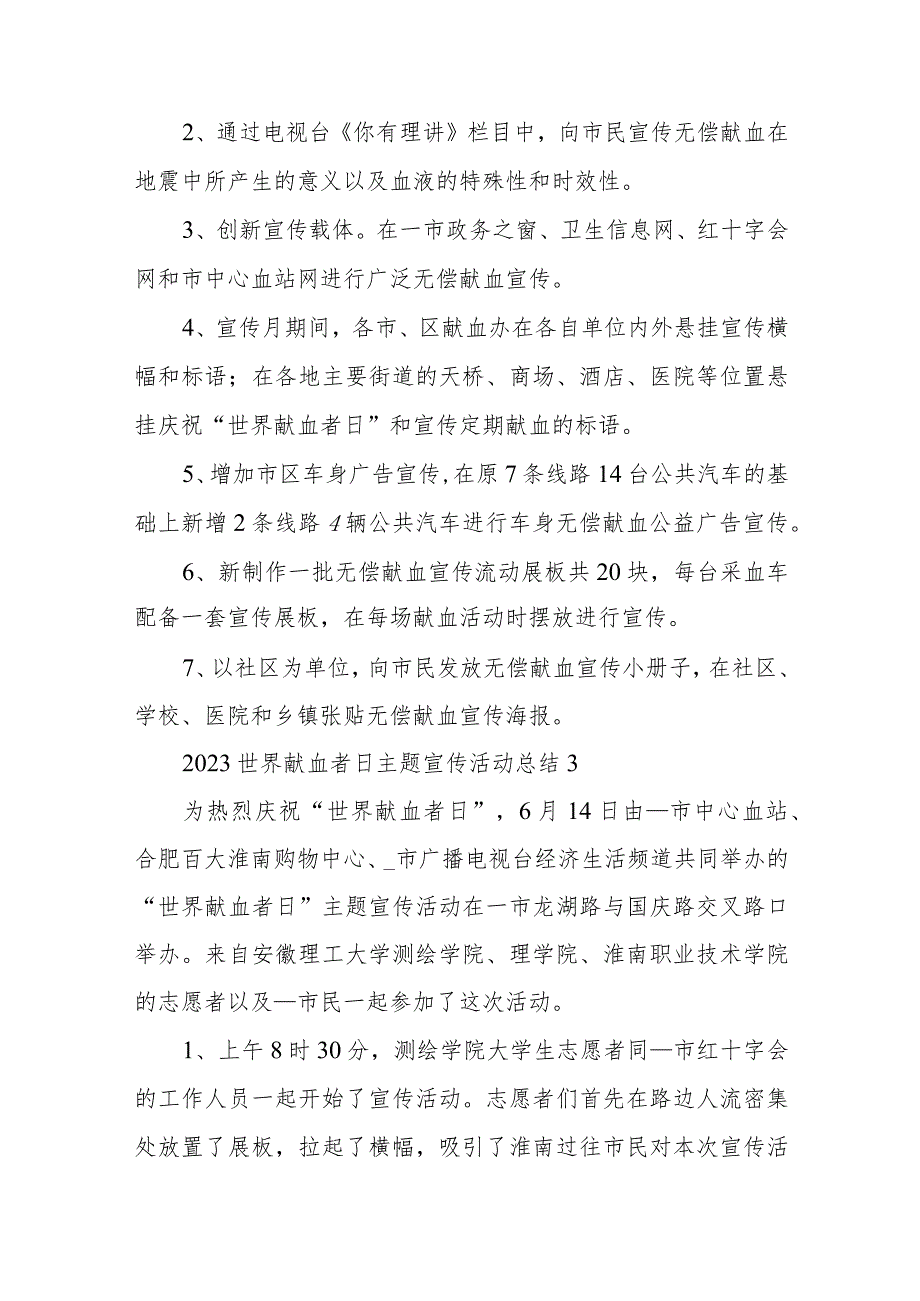 2、通过电视台《你有理讲》栏目中，向市民宣传无偿献血在
地震中所产生的意义以及血液的特殊性和时效性。
3、创新宣传载体。在一市政务之窗、卫生信息网、红十字会
网和市中心血站网进行广泛无偿献血宣传。
4、宣传月期间，各市、区献血办在各自单位内外悬挂宣传横
幅和标语；在各地主要街道的天桥、商场、酒店、医院等位置悬
挂庆祝“世界献血者日”和宣传定期献血的标语。
5、增加市区车身广告宣传,在原7条线路14台公共汽车的基
础上新增2条线路4辆公共汽车进行车身无偿献血公益广告宣传。
6、新制作一批无偿献血宣传流动展板共20块，每台采血车
配备一套宣传展板，在每场献血活动时摆放进行宣传。
7、以社区为单位，向市民发放无偿献血宣传小册子，在社区、
学校、医院和乡镇张贴无偿献血宣传海报。
2023世界献血者日主题宣传活动总结3
为热烈庆祝“世界献血者日”，6月14日由—市中心血站、
合肥百大淮南购物中心、_市广播电视台经济生活频道共同举办的
“世界献血者日”主题宣传活动在一市龙湖路与国庆路交叉路口
举办。来自安徽理工大学测绘学院、理学院、淮南职业技术学院
的志愿者以及—市民一起参加了这次活动。
1、上午8时30分，测绘学院大学生志愿者同—市红十字会
的工作人员一起开始了宣传活动。志愿者们首先在路边人流密集
处放置了展板，拉起了横幅，吸引了淮南过往市民对本次宣传活